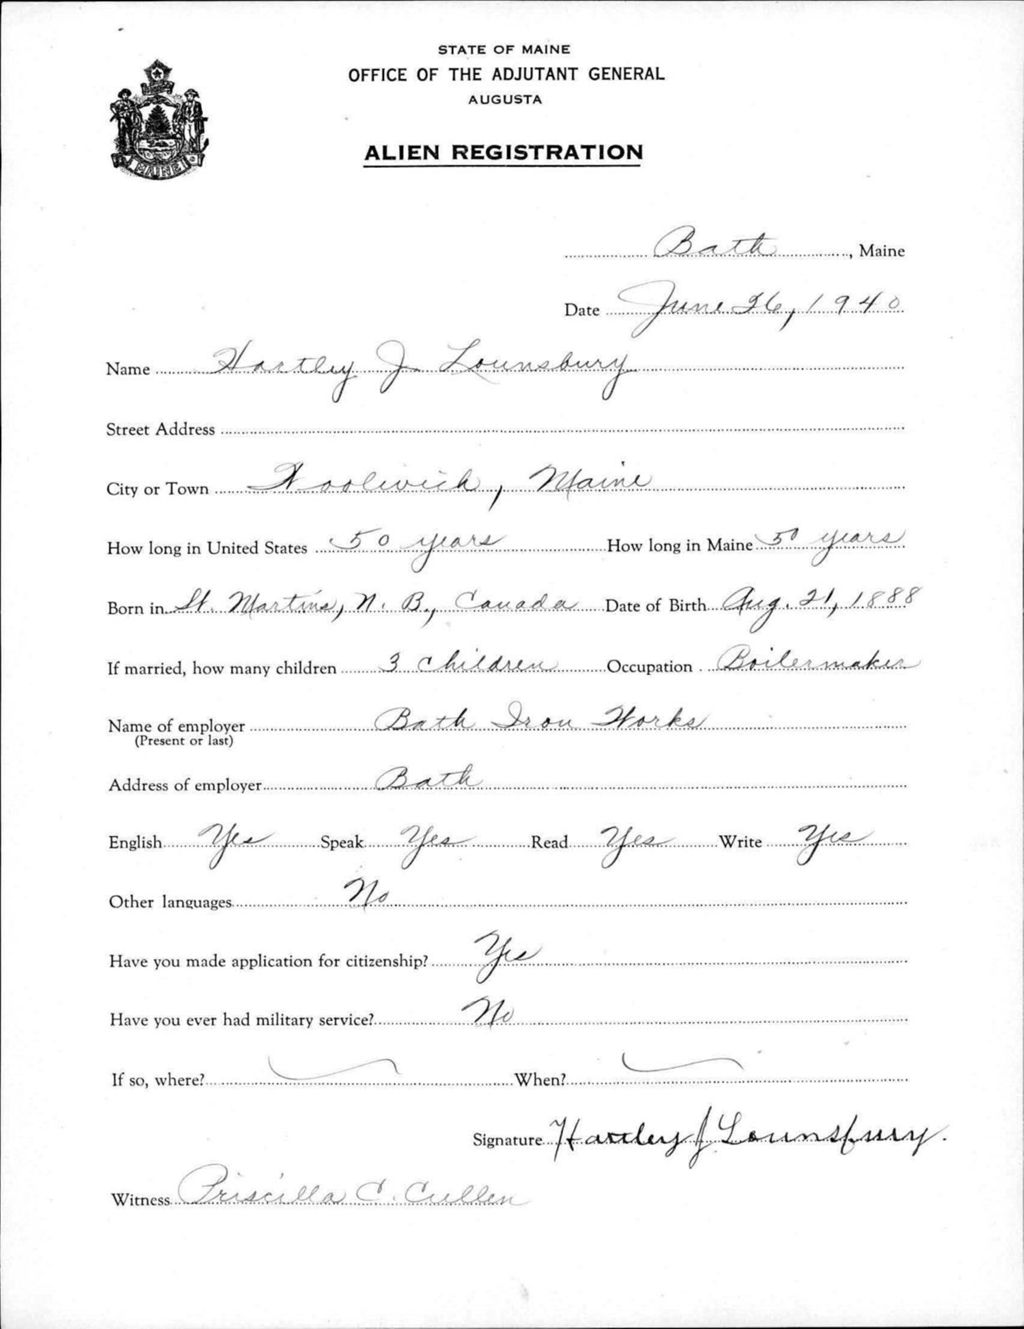 STATE OF MAINE
OFFICE OF THE ADJUTANT GENERAL
AUGUSTA
ALIEN REGISTRATION
MAINE
Bath, Maine
Date June 26, 1940
Name Hartley J Lounsbury
Street Address
City or Town Woolwich, Maine
How long in United States 50 years How long in Maine 50 years
Born in St. Martins, N. B., Canada Date of Birth Aug. 21, 1888
If married, how many children 3 children Occupation Boilermaker
Name of employer Bath Iron Works
(Present or last)
Address of employer Bath
English Yes Speak Yes Read Yes Write Yes
Other languages No
Have you made application for citizenship? Yes
Have you ever had military service? No
If so, where? When?
Signature Hartley J Lounsbury.
Witness Priscilla C. Cullen